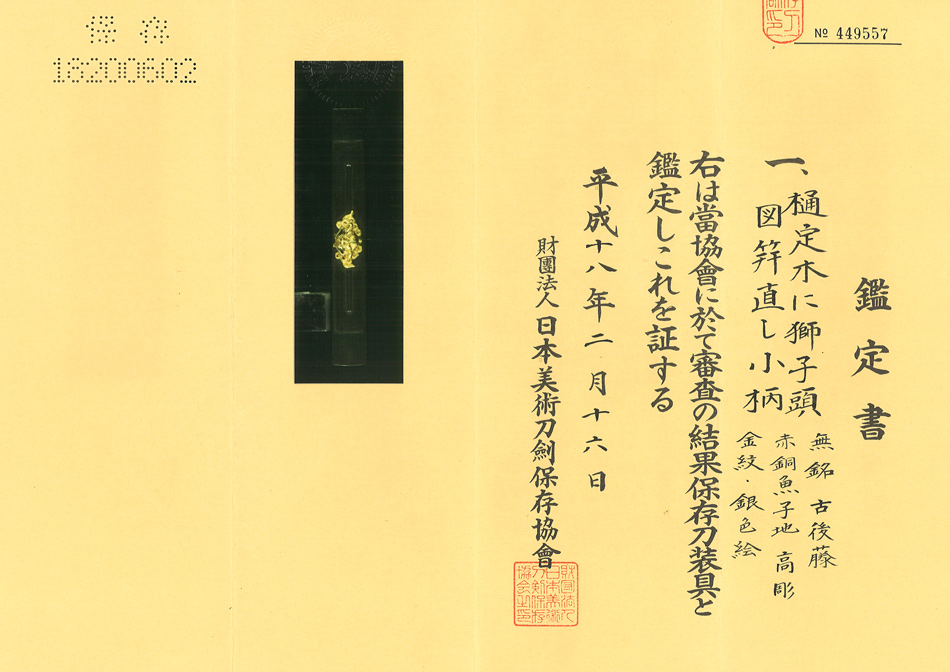 保存
18200602
№ 449557
鑑定書
一、樋定木に獅子頭
図笄直し小柄
無銘 古後藤
赤銅魚子地 高彫
金紋・銀色絵
右は當協會に於て審査の結果保存刀装具と
鑑定しこれを証する
平成十八年二月十六日
財團法人日本美術刀劍保存協會
財団法人
日本美術
刀剣保存
協会之印